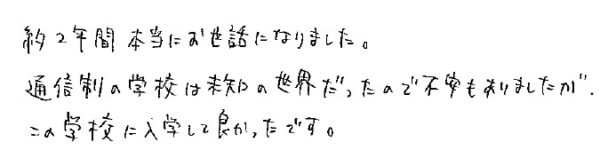 約2年間本当にお世話になりました。
通信制の学校は未知の世界だったので不安もありましたが、
この学校に入学して良かったです。